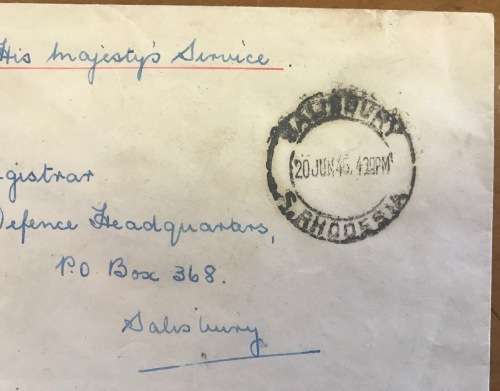 His Majesty's Service.
SALISBURY
20 JUN 45. 4 PM
S. RHODESIA
gistrar
Defence Headquarters,
P.O. Box 368.
Salisbury